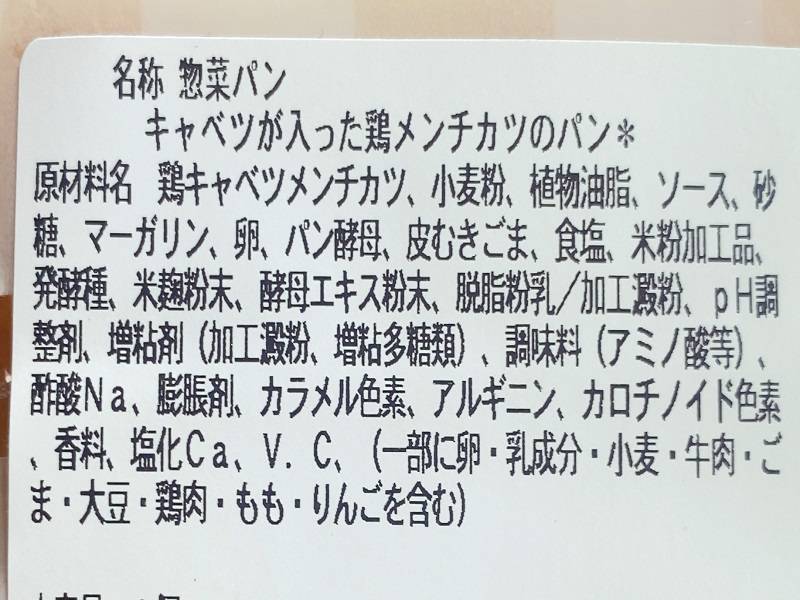 名称 惣菜パン
キャベツが入った鶏メンチカツのパン＊
原材料名 鶏キャベツメンチカツ、小麦粉、植物油脂、ソース、砂
糖、マーガリン、卵、パン酵母、皮むきごま、食塩、米粉加工品、
発酵種、米麹粉末、酵母エキス粉末、脱脂粉乳／加工澱粉、ｐＨ調
整剤、増粘剤（加工澱粉、増粘多糖類）、調味料（アミノ酸等）、
酢酸Ｎａ、膨脹剤、カラメル色素、アルギニン、カロチノイド色素
、香料、塩化Ｃａ、Ｖ．Ｃ、（一部に卵・乳成分・小麦・牛肉・ご
ま・大豆・鶏肉・もも・りんごを含む）